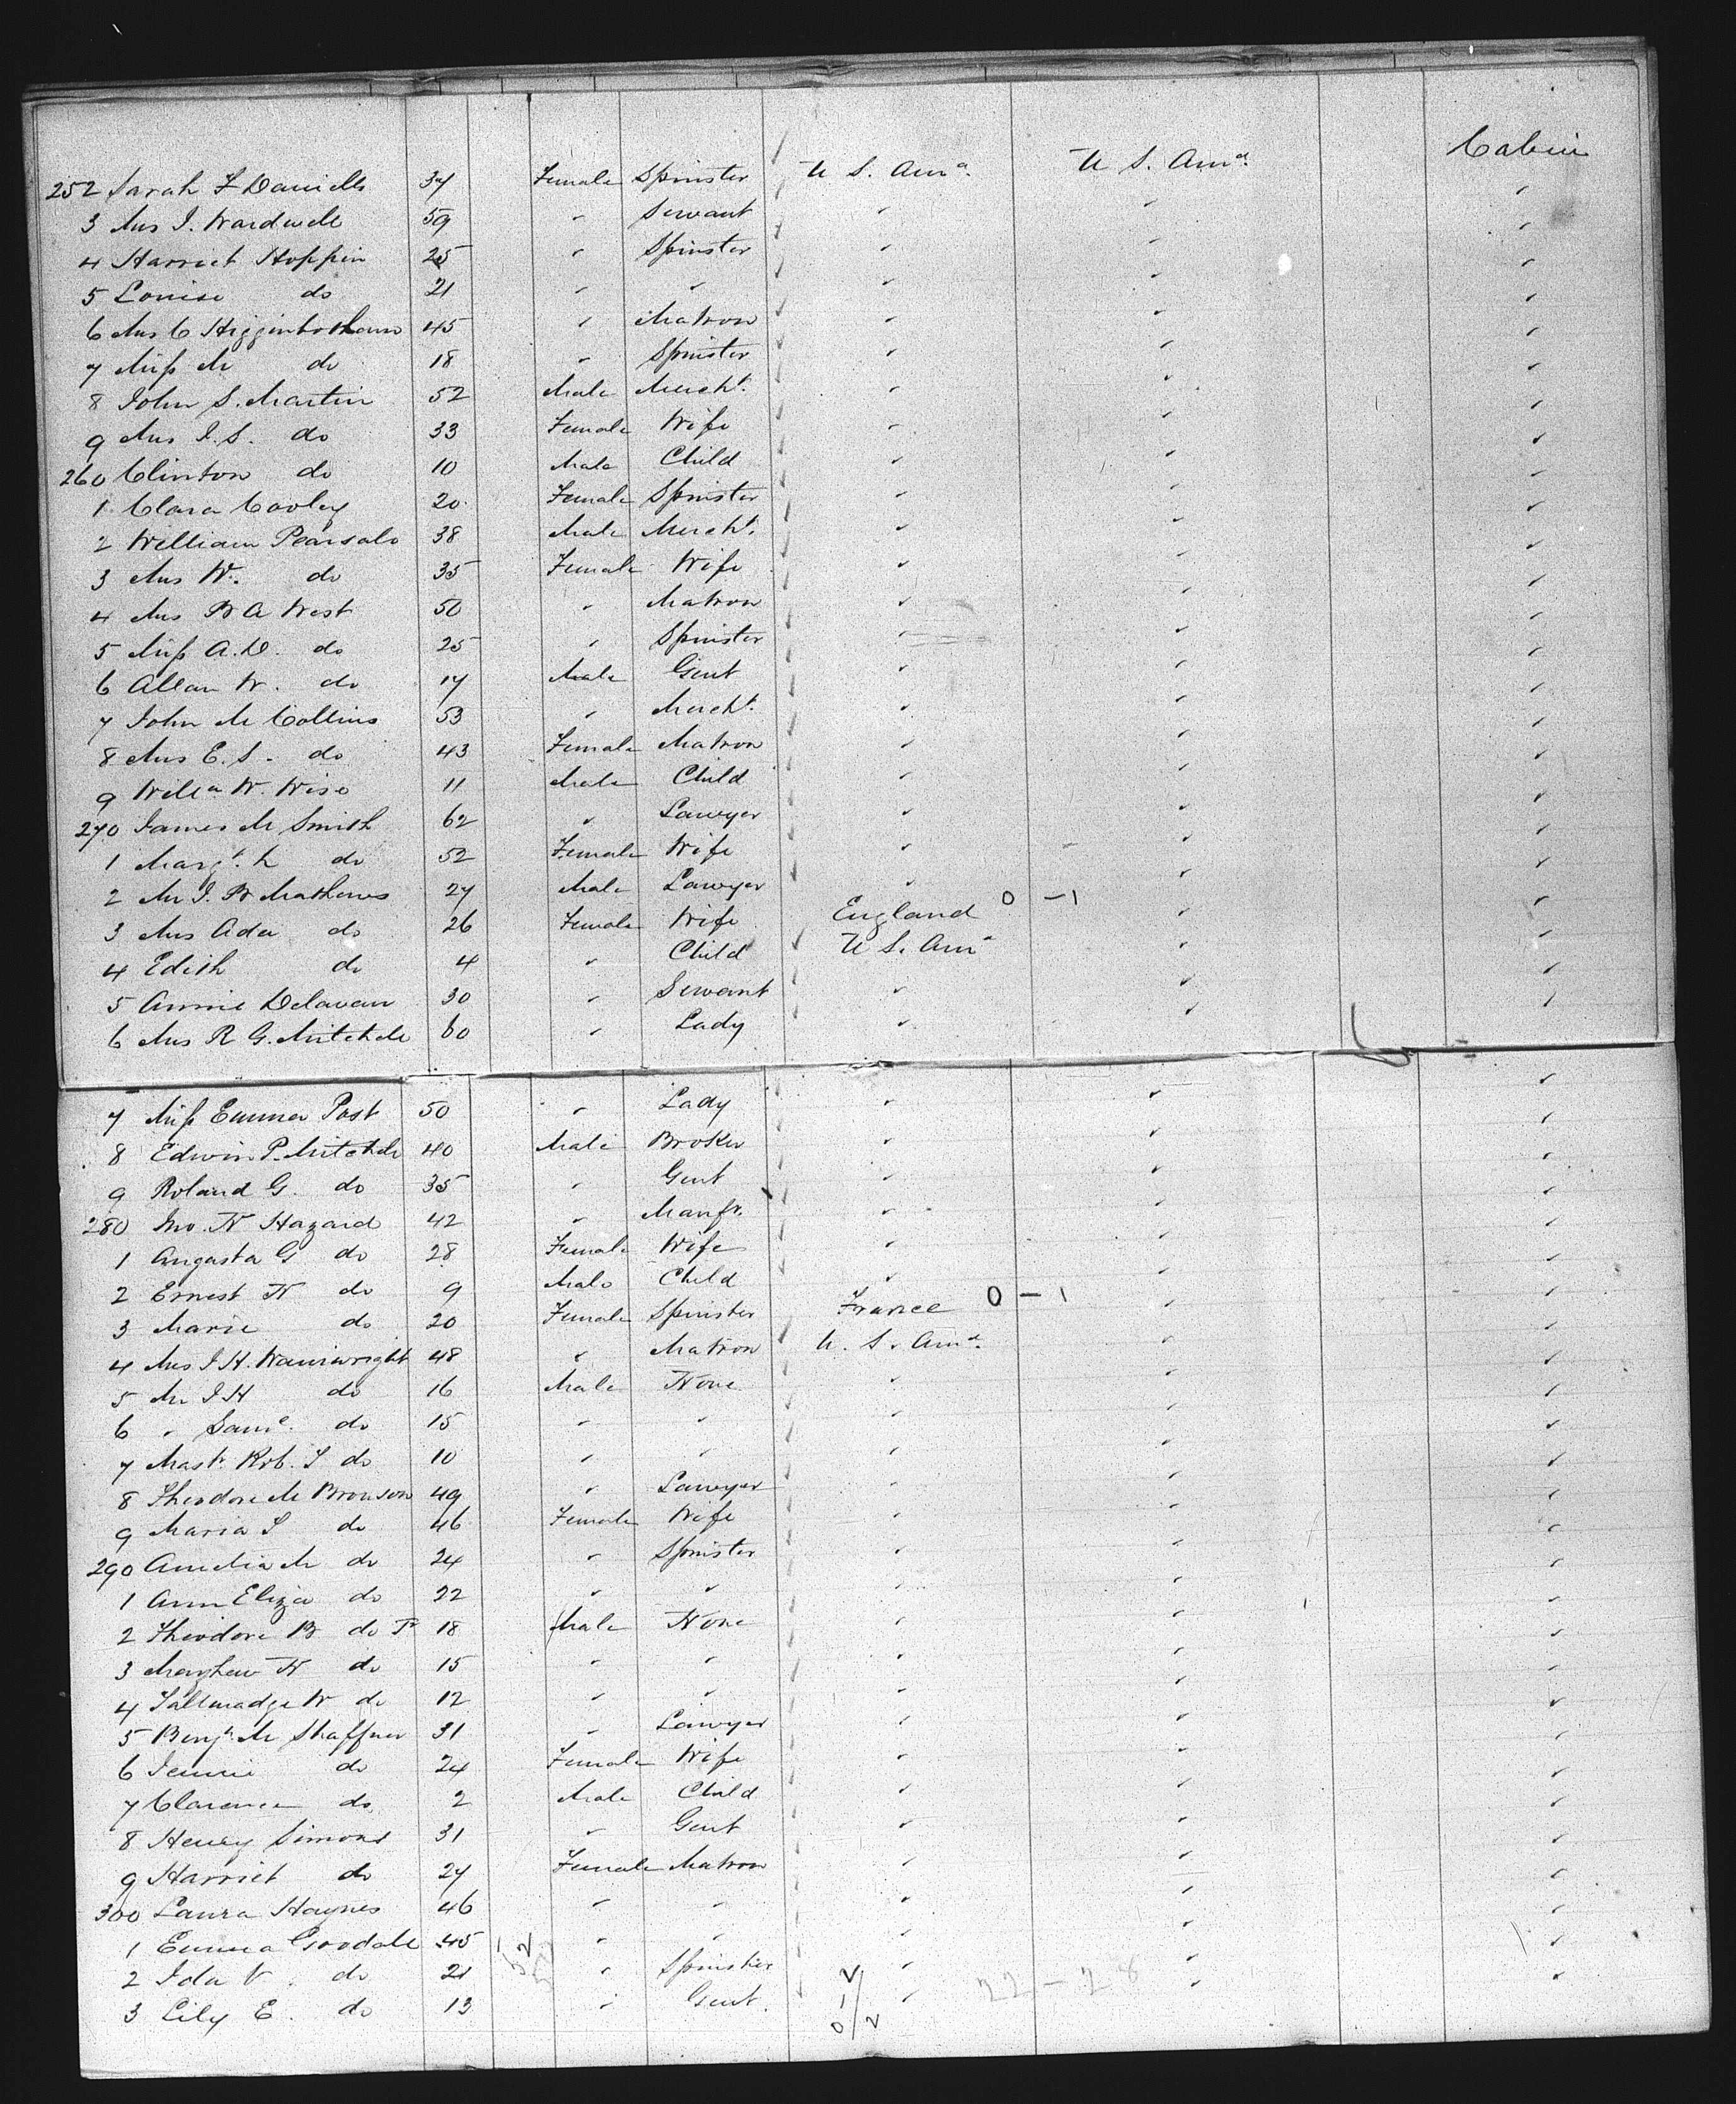 Cabin
252 Sarah F Daniells 34 Female Spinster U S. Ama. U S. Ama.
3 Mrs J. Wardwell 59 " Servant " " "
4 Harriet Hoppin 25 " Spinster " " "
5 Louise do 21 " " " " "
6 Mrs C Higginbotham 45 " Matron " " "
7 Miss M do 18 " Spinster " " "
8 John S. Martin 52 Male Mercht. " " "
9 Mrs J. S. do 33 Female Wife " " "
260 Clinton do 10 Male Child " " "
1 Clara Cooley 20 Female Spinster " " "
2 William Pearsals 38 Male Mercht. " " "
3 Mrs W. do 35 Female Wife " " "
4 Mrs B A West 50 " Matron " " "
5 Miss A. D. do 25 " Spinster " " "
6 Allan W. do 17 Male Gent " " "
7 John M Collins 53 " Mercht. " " "
8 Mrs E. S. do 43 Female Matron " " "
9 Willm W. Wise 11 Male Child " " "
270 James M Smith 62 " Lawyer " " "
1 Margt. L do 52 Female Wife " " "
2 Mr J. B Mathews 27 Male Lawyer " " "
3 Mrs Ada do 26 Female Wife England 0 - 1 " "
4 Edith do 4 " Child U S. Ama " "
5 Annie Delavan 30 " Servant " " "
6 Mrs R G. Mitchell 60 " Lady " " "
7 Miss Emma Post 50 " Lady " " "
8 Edwin P. Mitchell 40 Male Broker " " "
9 Roland G. do 35 " Gent " " "
280 Jno. N Hazard 42 " Manfr. " " "
1 Augusta G do 28 Female Wife " " "
2 Ernest N do 9 Male Child " " "
3 Marie do 20 Female Spinster France 0 - 1 " "
4 Mrs J H. Wainwright 48 " Matron U. S. Ama. " "
5 Mr J H do 16 Male None " " "
6 " Saml. do 15 " " " " "
7 Mastr Rob. S do 10 " " " " "
8 Theodore M Bronson 49 " Lawyer " " "
9 Maria S do 46 Female Wife " " "
290 Amelia M do 24 " Spinster " " "
1 Ann Eliza do 22 " " " " "
2 Theodore B do Jr 18 Male None " " "
3 Mayhew N do 15 " " " " "
4 Tallmadge W do 12 " " " " "
5 Benjn M Shaffner 31 " Lawyer " " "
6 Jennie do 24 Female Wife " " "
7 Clarence do 2 Male Child " " "
8 Henry Simons 31 " Gent " " "
9 Harriet do 27 Female Matron " " "
300 Laura Haynes 46 " " " " "
1 Emma Goodale 45 " " " " "
2 Ida V. do 21 " Spinster " 22 - 28 " "
3 Lily E. do 13 " Gent. " " "